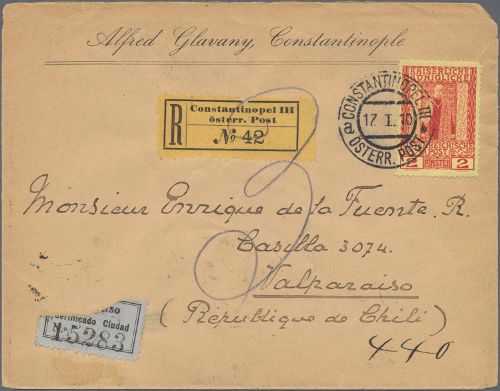 Alfred Glavany, Constantinople
R
Constantinopel III
österr. Post
No 42
CONSTANTINOPEL III
17. I. 10
a
ÖSTERR. POST
KAISERLICHE KÖNIGLICHE
ÖSTERREICHISCHE POST
2 PIASTER 2
Monsieur Enrique de la Fuente. R.
Casilla 3074.
Valparaiso
(République de Chili)
440
Certificado Ciudad
No 15283